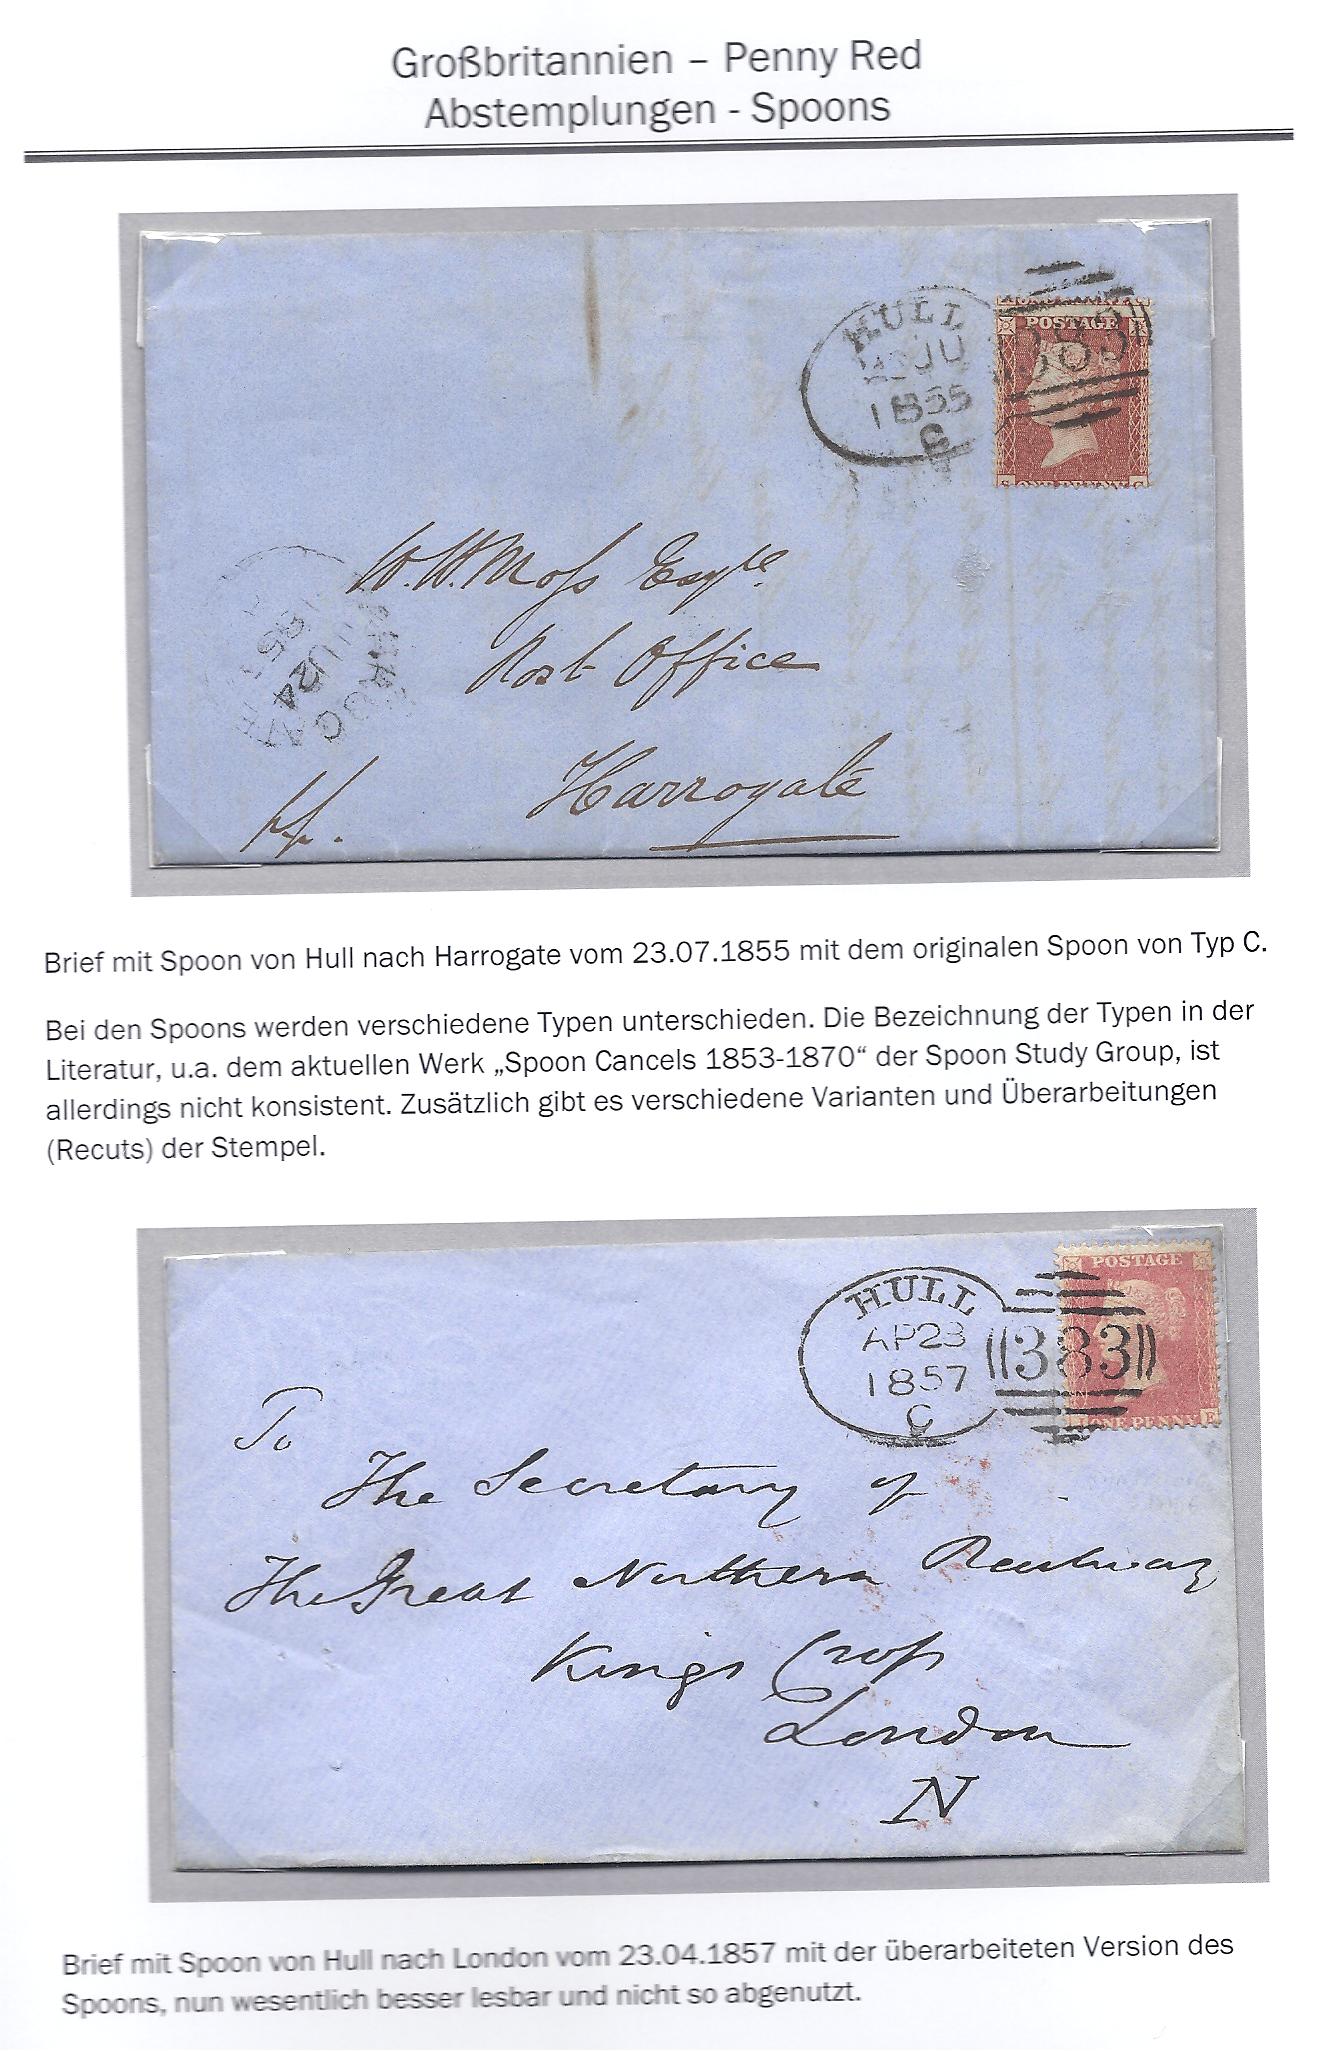 Großbritannien – Penny Red
Abstemplungen - Spoons
HULL
JU
1855
C
383
POSTAGE
W. W. Moss Esqre
Post Office
Harrogate
JU 24
Brief mit Spoon von Hull nach Harrogate vom 23.07.1855 mit dem originalen Spoon von Typ C.
Bei den Spoons werden verschiedene Typen unterschieden. Die Bezeichnung der Typen in der
Literatur, u.a. dem aktuellen Werk „Spoon Cancels 1853-1870“ der Spoon Study Group, ist
allerdings nicht konsistent. Zusätzlich gibt es verschiedene Varianten und Überarbeitungen
(Recuts) der Stempel.
HULL
AP23
1857
C
383
POSTAGE
ONE PENNY E
To
The Secretary of
The Great Northern Railway
Kings Cross
London
N
Brief mit Spoon von Hull nach London vom 23.04.1857 mit der überarbeiteten Version des
Spoons, nun wesentlich besser lesbar und nicht so abgenutzt.